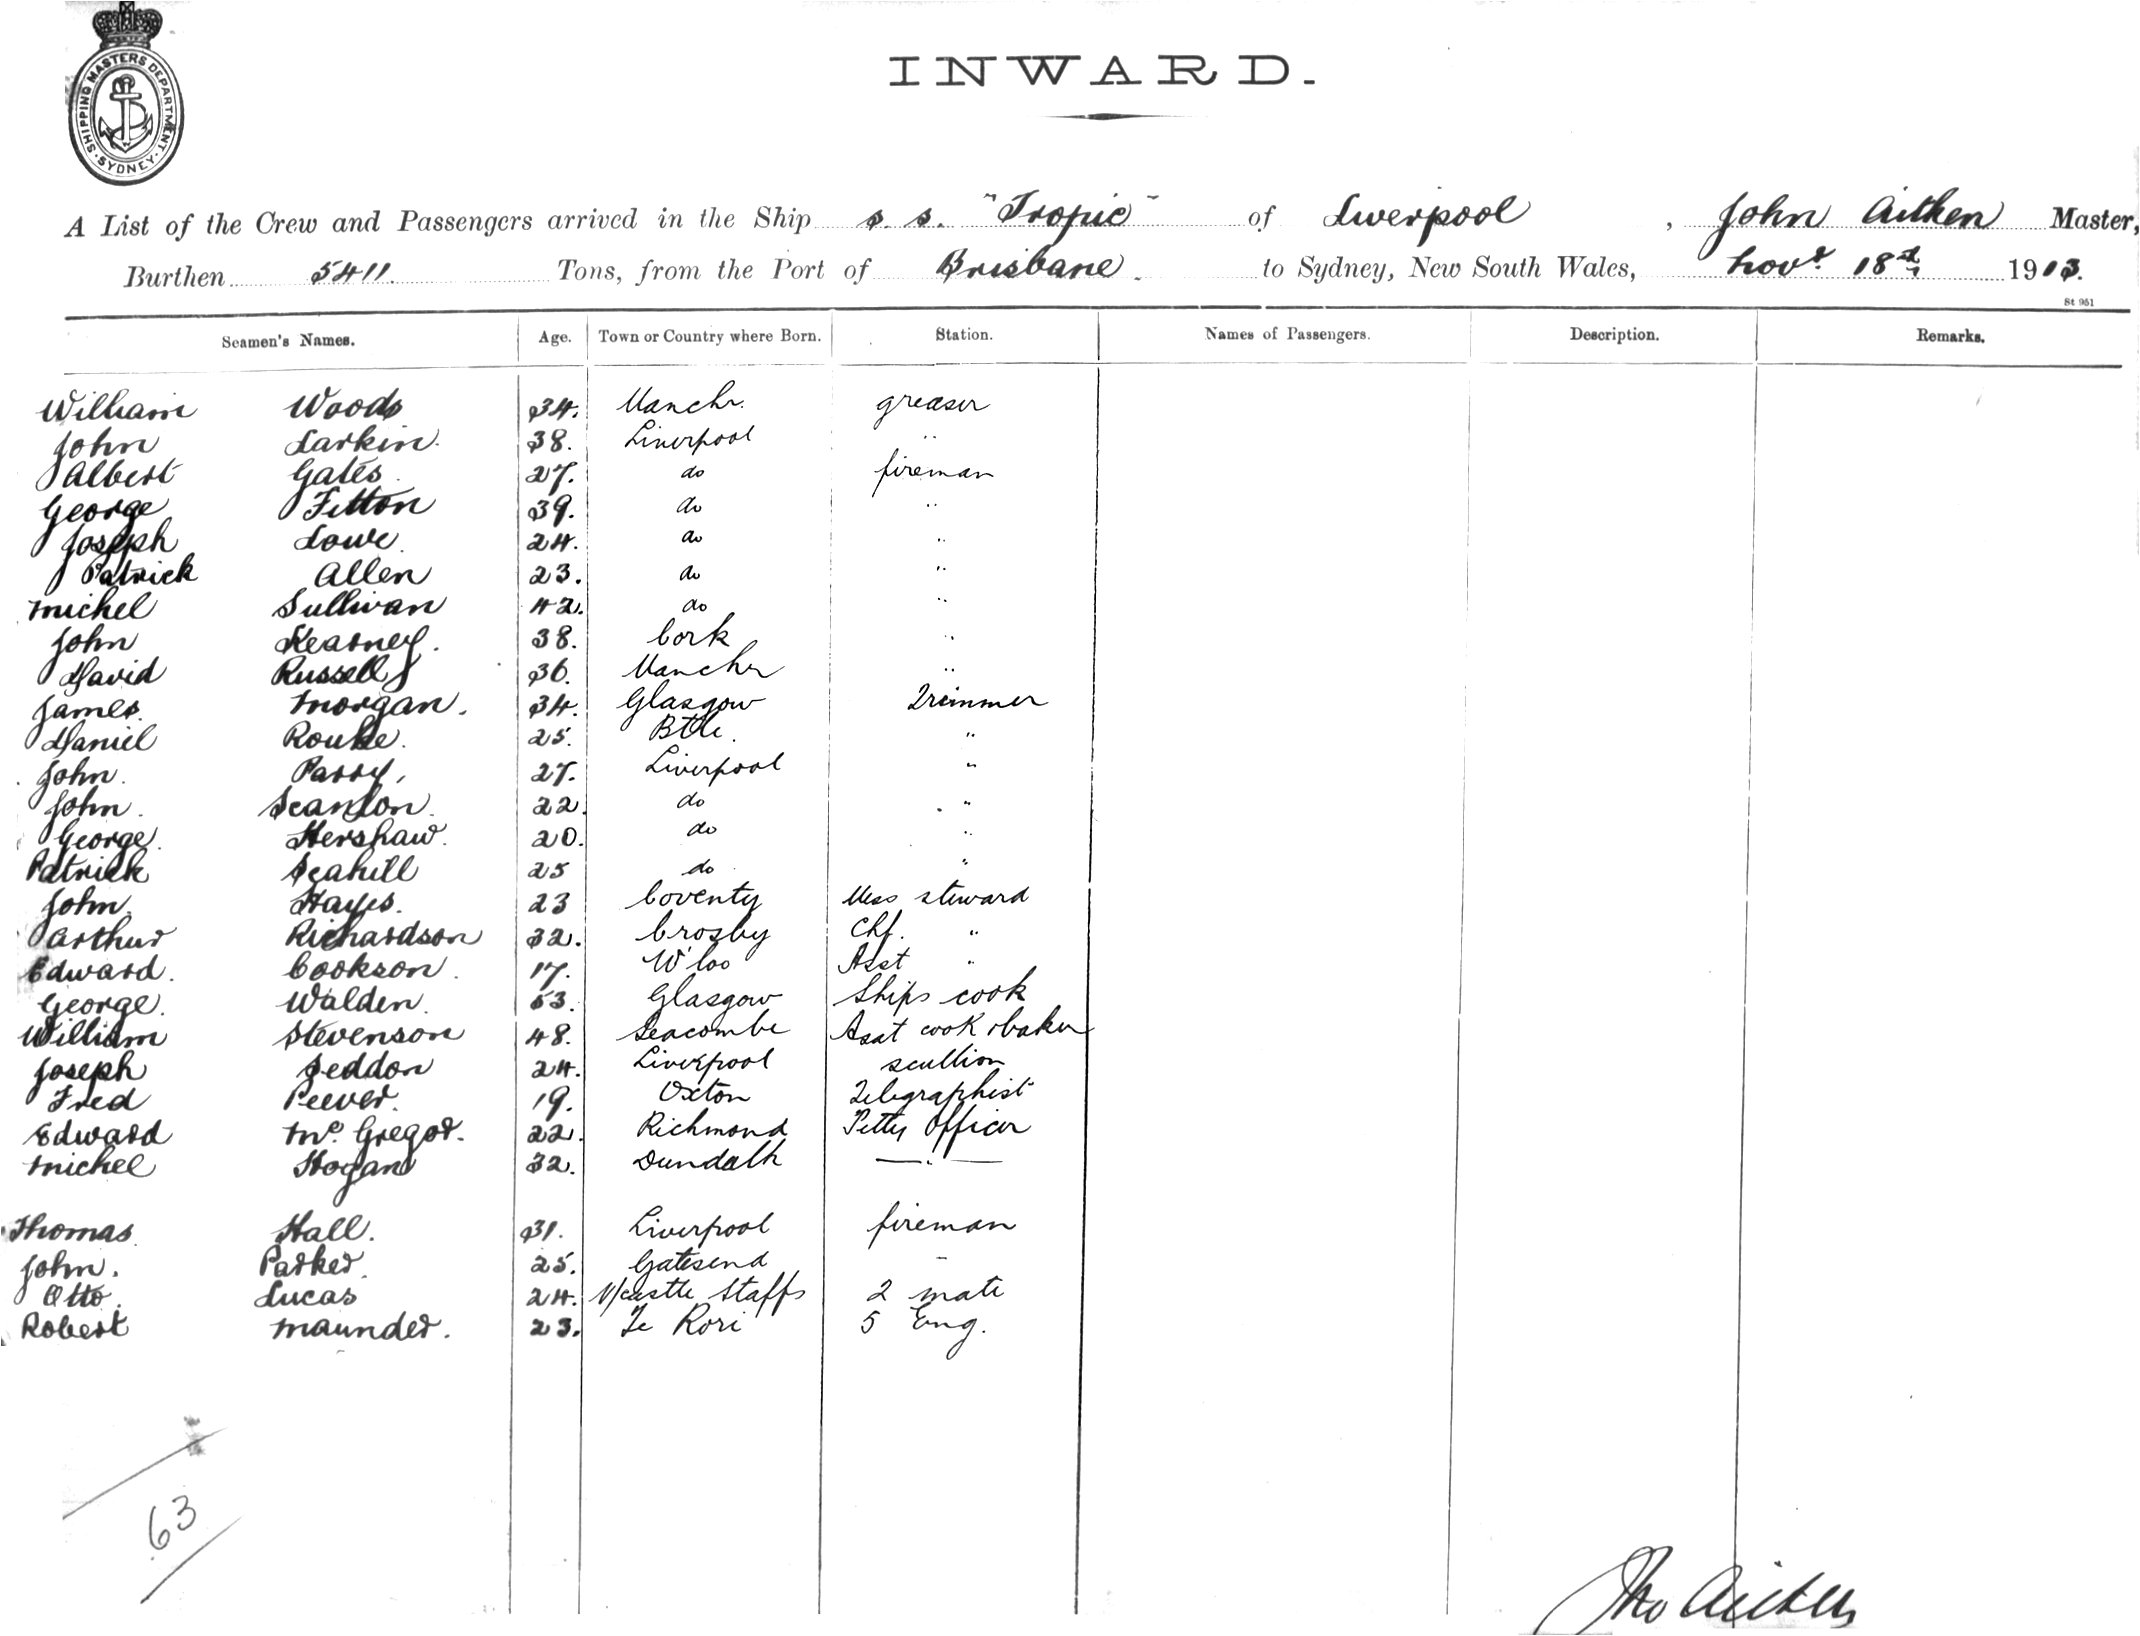 SHIPPING MASTERS DEPARTMENT
SYDNEY
INWARD.
A List of the Crew and Passengers arrived in the Ship s.s. "Tropic" of Liverpool, John Aitken Master,
Burthen 5411. Tons, from the Port of Brisbane. to Sydney, New South Wales, Novr. 18th, 1913.
St 951
Seamen's Names. Age. Town or Country where Born. Station. Names of Passengers. Description. Remarks.
William Woods 34. Manchr. greaser
John Larkin. 38. Liverpool "
Albert Gates. 27. do fireman
George Fitton 39. do "
Joseph Lowe. 24. do "
Patrick Allen 23. do "
Michel Sullivan 42. do "
John Kearney. 38. Cork "
David Russell 36. Manchr "
James. Morgan. 34. Glasgow Trimmer
Daniel Rourke. 25. Btle. "
John. Parry, 27. Liverpool "
John. Scanlon. 22. do "
George. Hershaw. 20. do "
Patrick Scahill 25 do "
John. Hayes. 23 Coventy Mess steward
Arthur Richardson 32. Crosby Chf. "
Edward. Cookson. 17. W'loo Asst "
George. Walden. 53. Glasgow Ships cook
William Stevenson 48. Seacombe Asst cook & baker
Joseph Seddon 24. Liverpool scullion
Fred Peever. 19. Oxton Telegraphist
Edward Mc. Gregor. 22. Richmond Petty Officer
Michel Hogan 32. Dundalk — " —
Thomas. Hall. 31. Liverpool fireman
John. Parker. 25. Gatesend -
Otto. Lucas 24. N/castle Staffs 2 mate
Robert Maunder. 23. Te Kori 5 Eng.
63
Jno Aitken